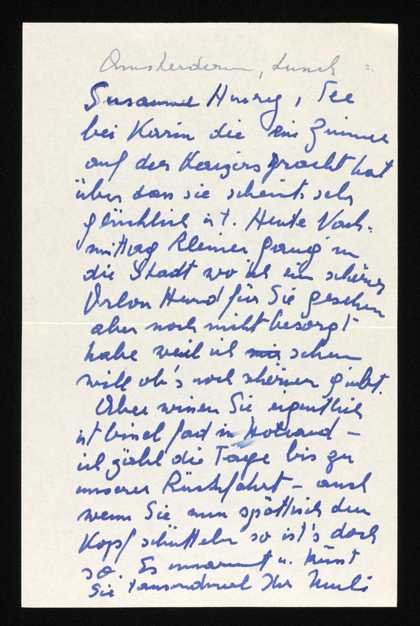 Amsterdam, Lunch
Susanne Hurey, Tee
bei Karin die ein Zimmer
auf der Kaizersgracht hat
über dass sie scheint's sehr
glücklich ist. Heute Nach-
mittag kleiner Gang in
die Stadt wo ich ein schönes
Orlon Hemd für Sie gesehen
aber noch nicht besorgt
habe weil ich schaun
will ob's noch schöner giebt.
Aber wissen Sie eigentlich
ist bissel fad in Holland –
ich zähl die Tage bis zu
unserer Rückfahrt – auch
wenn Sie nun spöttisch den
Kopf schütteln so ist's doch
so. Es umarmt u. küsst
Sie tausendmal Ihr Muli